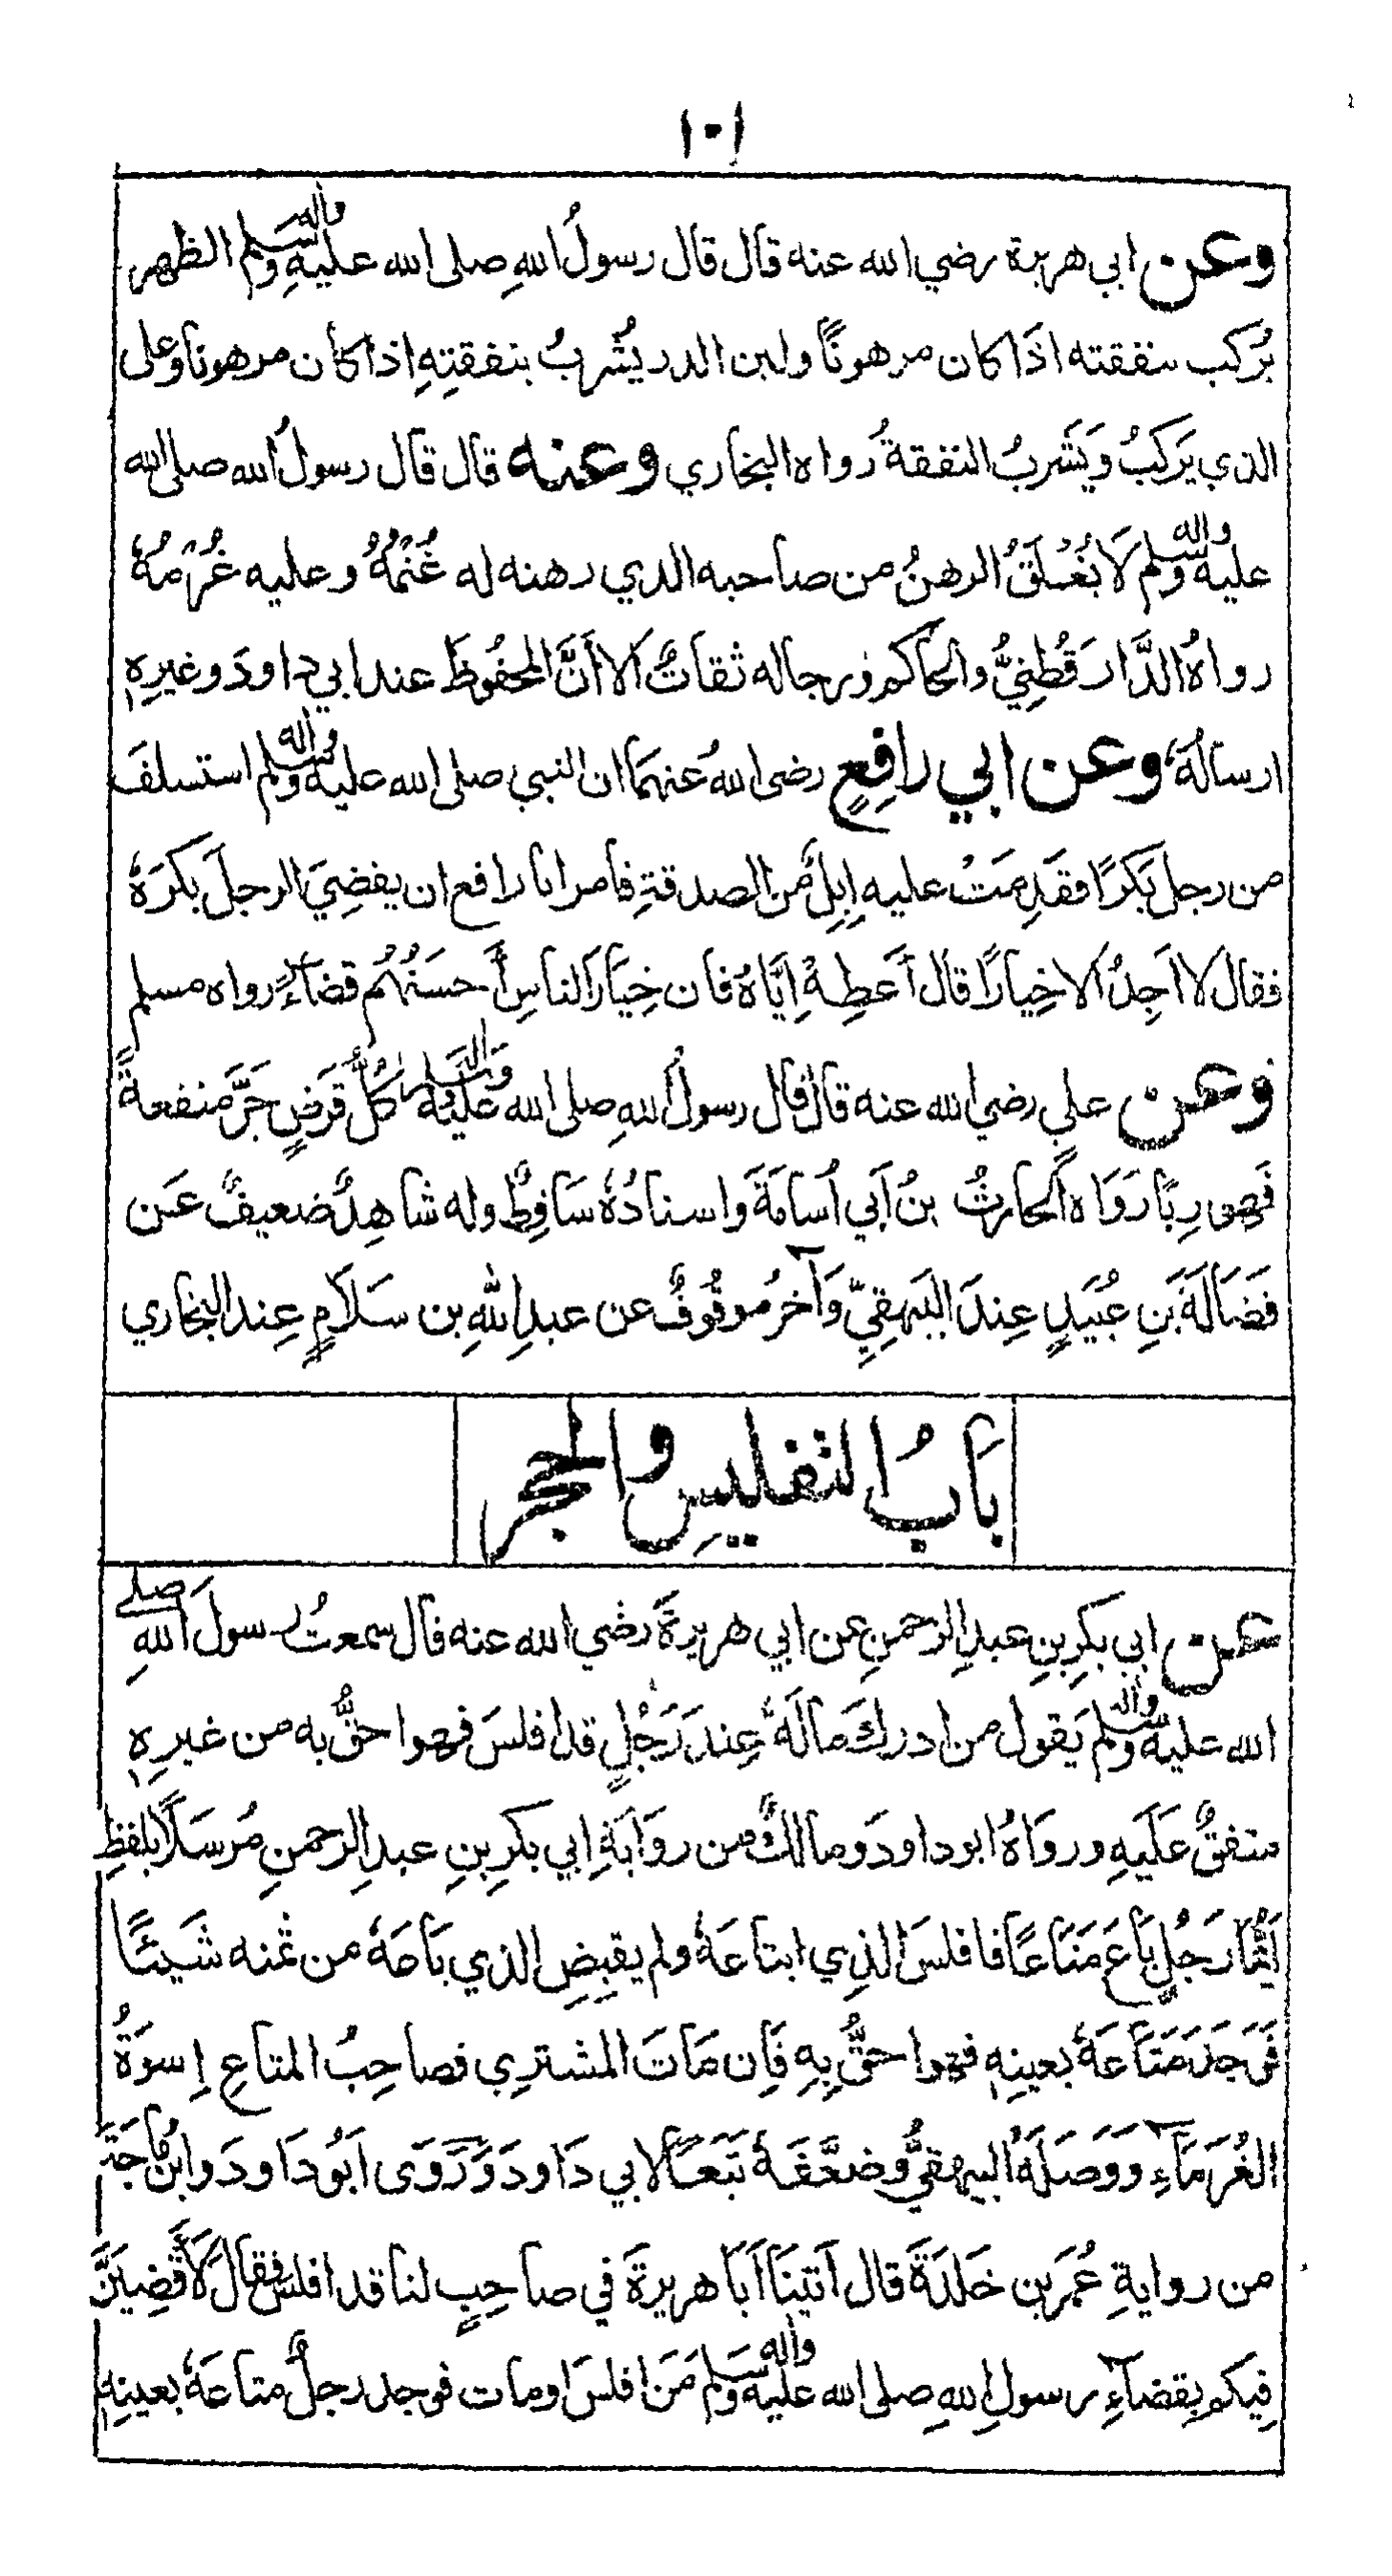 ١٠١
وعن ابي هريرة رضي الله عنه قال قال رسولُ اللهِ صلى الله عليهِ واله وسلم الظهر
يُركب بنفقته اذَا كان مرهونًا ولبن الدر يُشربُ بنفقتِهِ اذا كان مرهونا وعلى
الذي يَركَبُ وَيَشَربُ النفقةُ رواه البخاري وعنه قال قال رسولُ الله صلى الله
عليه واله وسلم لَا يُغْلَقُ الرهنُ من صاحبه الذي رهنه له غُنْمُهُ وعليه غُرْمُهُ
رواهُ الدَّارَقُطنِيُّ والحاكم ورجاله ثقاتٌ الا أنَّ المحفُوظَ عند ابي داودَ وغيرِهِ
ارسالُهُ وعن ابي رافِعٍ رضى اللهُ عنهمَا ان النبي صلى الله عليه واله وسلم استسلفَ
من رجلٍ بَكرًا فقَدِمَتْ عليه اِبِلٌ مِّن الصدقةِ فامر ابا رافع ان يقضِيَ الرجلَ بَكرَهُ
فقال لا اَجِدُ الا خِيارًا قال أَعطِهْ اِيَّاهُ فان خِيَارَ الناسِ أَحسَنُهُم قضَاءً رواه مسلم
وعن علي رضي الله عنه قال قال رسولُ اللهِ صلى الله عليه واله وسلم كُلُّ قَرضٍ جَرَّ منفعةً
فَهو رِبًا رَوَاه الحارثُ بنُ اَبي اُسامَةَ واسنادُهُ سَاقِطٌ وله شاهِدٌ ضعيفٌ عَن
فَضَالَةَ بَنِ عُبَيَدٍ عِندَ البَيهقِيِّ وَآخَرُ موقُوفٌ عن عبدِ اللهِ بن سَلَامٍ عِند البخاري
بَابُ التفليسِ والحجر
عن ابي بكرِ بنِ عبدِ الرحمنِ عن ابي هريرةَ رضي الله عنه قال سمعتُ رسولَ اللهِ صلى
الله عليه واله وسلم يَقول من ادركَ مالَهُ عِندَ رَجُلٍ قد افلسَ فهو احقُّ به من غيرِهِ
متفقٌ عَلَيهِ ورواهُ ابو داودَ ومالكٌ من روَايَةِ ابي بكرِ بنِ عبدِ الرحمنِ مُرسَلًا بلفظِ
اَيُّمَا رَجُلٍ بَاعَ مَتَاعًا فافلسَ الذِي ابتاعَهُ ولم يقبِضِ الذي بَاعَهُ من ثمنه شَيئًا
فَوَجَدَ مَتَاعَهُ بعينِهِ فهو احقُّ بِهِ فَاِن مَاتَ المشترِي فصاحِبُ المتاعِ اِسوَةُ
الغُرَمَآءِ وَوَصَلَهُ البيهقيُّ وضعَّفَهُ تَبَعًا لابي دَاودَ وَرَوَى اَبُو دَاودَ وابنُ مَاجَة
من روايةِ عُمَرَ بنِ خَلدَةَ قال اَتَينَا اَبَا هريرةَ في صاحِبٍ لنا قد افلسَ فقالَ لَاَقضِيَنَّ
فِيكم بِقضاءِ رسولِ اللهِ صلى الله عليه واله وسلم مَن افلسَ او مات فوجد رجلٌ متاعَهُ بعينِهِ